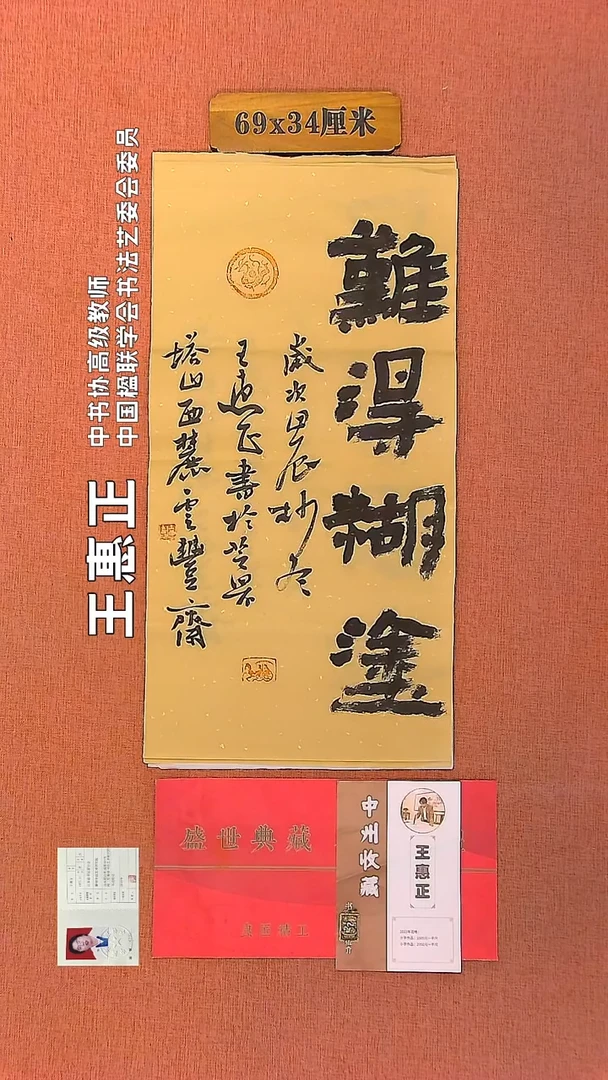 69x34厘米
難得糊塗
歲次甲辰杪冬
王惠正書於萓界
塔山西麓雲豐齋
王惠正
中书协高级教师
中国楹联学会书法艺委会委员
盛世典藏
中州收藏
王惠正